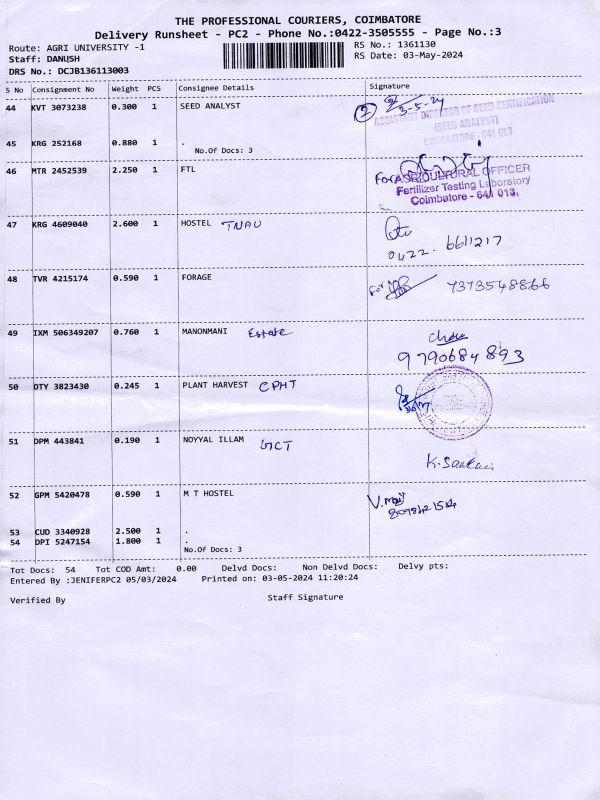 THE PROFESSIONAL COURIERS, COIMBATORE
Delivery Runsheet - PC2 - Phone No.:0422-3505555 - Page No.:3
Route: AGRI UNIVERSITY -1
RS No.: 1361130
Staff: DANUSH
RS Date: 03-May-2024
DRS No.: DCJB136113003
S No Consignment No Weight PCS Consignee Details Signature
44 KVT 3073238 0.300 1 SEED ANALYST
2 3-5-24
ASSISTANT DIRECTOR OF SEED CERTIFICATION
(SEED ANALYST)
COIMBATORE - 641 013
45 KRG 252168 0.880 1 .
No.Of Docs: 3
46 MTR 2452539 2.250 1 FTL
For AGRICULTURAL OFFICER
Fertilizer Testing Laboratory
Coimbatore - 641 013.
47 KRG 4609040 2.600 1 HOSTEL TNAU
0422 - 6611217
48 TVR 4215174 0.590 1 FORAGE
For 7373548866
49 IXM 506349207 0.760 1 MANONMANI Estate
9790684893
50 DTY 3823430 0.245 1 PLANT HARVEST CPHT
51 DPM 443841 0.190 1 NOYYAL ILLAM
52 GPM 5420478 0.590 1 M T HOSTEL
53 CUD 3340928 2.500 1 .
54 DPI 5247154 1.800 1 .
No.Of Docs: 3
Tot Docs: 54 Tot COD Amt: 0.00 Delvd Docs: Non Delvd Docs: Delvy pts:
Entered By :JENIFERPC2 05/03/2024 Printed on: 03-05-2024 11:20:24
Verified By
Staff Signature